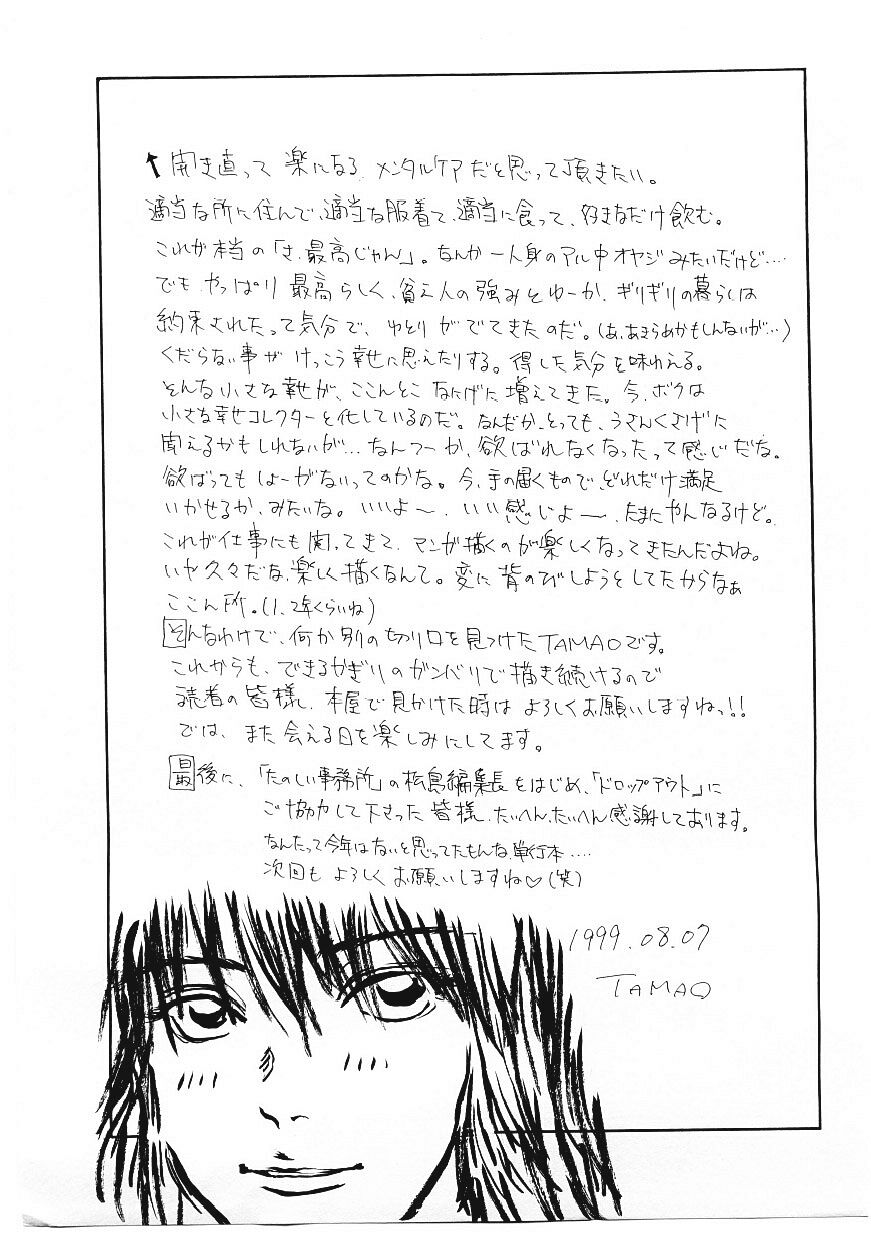 ↑開き直って 楽になる メンタルケアだと思って頂きたい。
適当な所に住んで、適当な服着て、適当に食って、好きなだけ飲む。
これが本当の「さ、最高じゃん」。なんか一人身のアル中オヤジみたいだけど‥‥
でも、やっぱり 最高らしく、貧乏人の強みとゆーか、ギリギリの暮らしは
約束されたって気分で、ゆとりがでてきたのだ。(あ、あきらめかもしんないが…)
くだらない事が けっこう幸せに思えたりする。得した気分を味わえる。
そんな小さな幸せが、ここんとこ なにげに増えてきた。今、ボクは
小さな幸せコレクターと化しているのだ。なんだか、とっても、うさんくさげに
聞えるかもしれないが… なんつーか、欲ばれなくなったって感じだな。
欲ばってもしょーがないってのかな。今、手の届くもので、どれだけ満足
いかせるか、みたいな。いいよ〜、いい感じよ〜、たまにやんなるけど。
これが仕事にも関ってきて、マンガ描くのが楽しくなってきたんだよね。
いや久々だな、楽しく描くなんて。変に背のびしようとしてたからなぁ
ここん所。(1、2年くらいね)
そんなわけで、何か別の切り口を見つけたTAMAOです。
これからも、できるかぎりのガンバリで描き続けるので
読者の皆様、本屋で見かけた時は よろしくお願いしますねっ!!
では、また会える日を楽しみにしてます。
最後に、「たのしい事務所」の松島編集長をはじめ、「ドロップアウト」に
ご協力して下さった皆様、たいへん、たいへん感謝しております。
なんたって今年はないと思ってたもんな単行本‥‥
次回も よろしくお願いしますね♡(笑)
1999.08.07
TAMAO